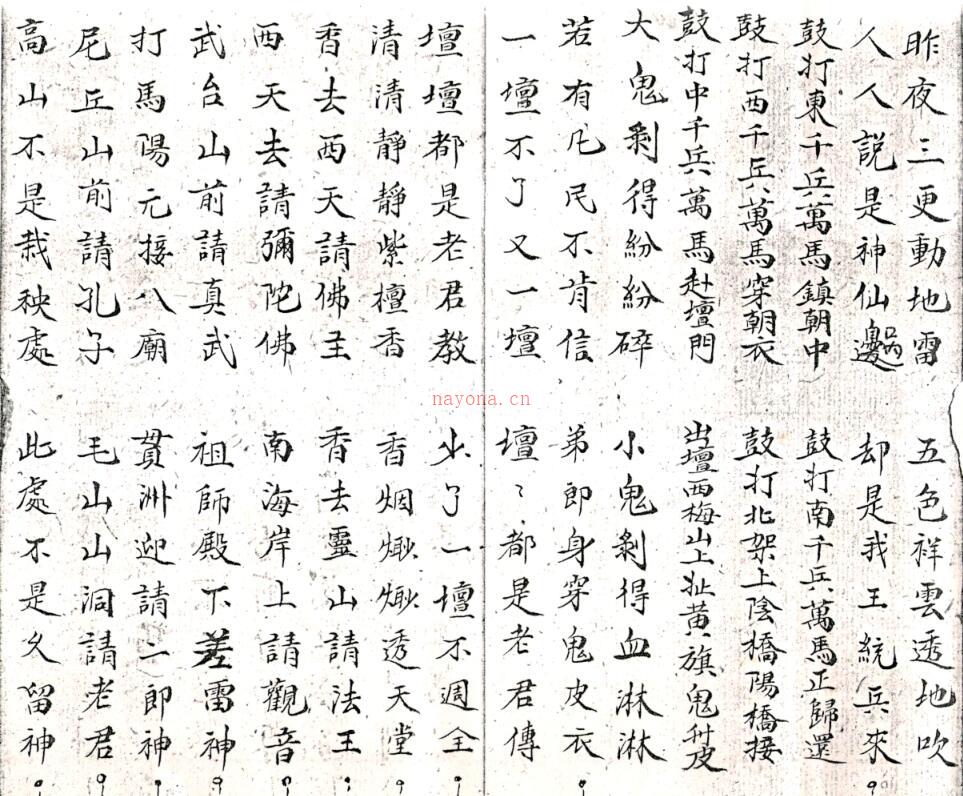 昨夜三更動地雷 五色祥雲透地吹
人人說是神仙 却是我王統兵來
鼓打東千兵萬馬鎮朝中 鼓打南千兵萬馬正歸還
鼓打西千兵萬馬穿朝衣 鼓打北架上陰橋陽橋接
鼓打中千兵萬馬赴壇門 出壇西梅山上扯黃旗鬼升皮
大鬼剥得紛紛碎 小鬼剥得血淋淋
若有凡民不肯信 弟郎身穿鬼皮衣
一壇不了又一壇 壇〻都是老君傳
壇壇都是老君教 少了一壇不週全
清清靜靜紫檀香 香烟透天堂
香去西天請佛主 香去靈山請法王
西天去請彌陀佛 南海岸上請觀音
武台山前請真武 祖師殿下差雷神
打馬陽元接八廟 貫洲迎請二郎神
尼丘山前請孔子 毛山山洞請老君
高山不是栽秧處 此處不是久留神
nayona.cn